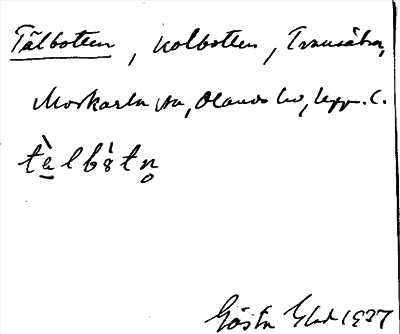 Tälbotten, kolbotten, Transätra,
Morkarla sn, Olands hd, Uppl.
tälbòtn̥
Gösta 1937